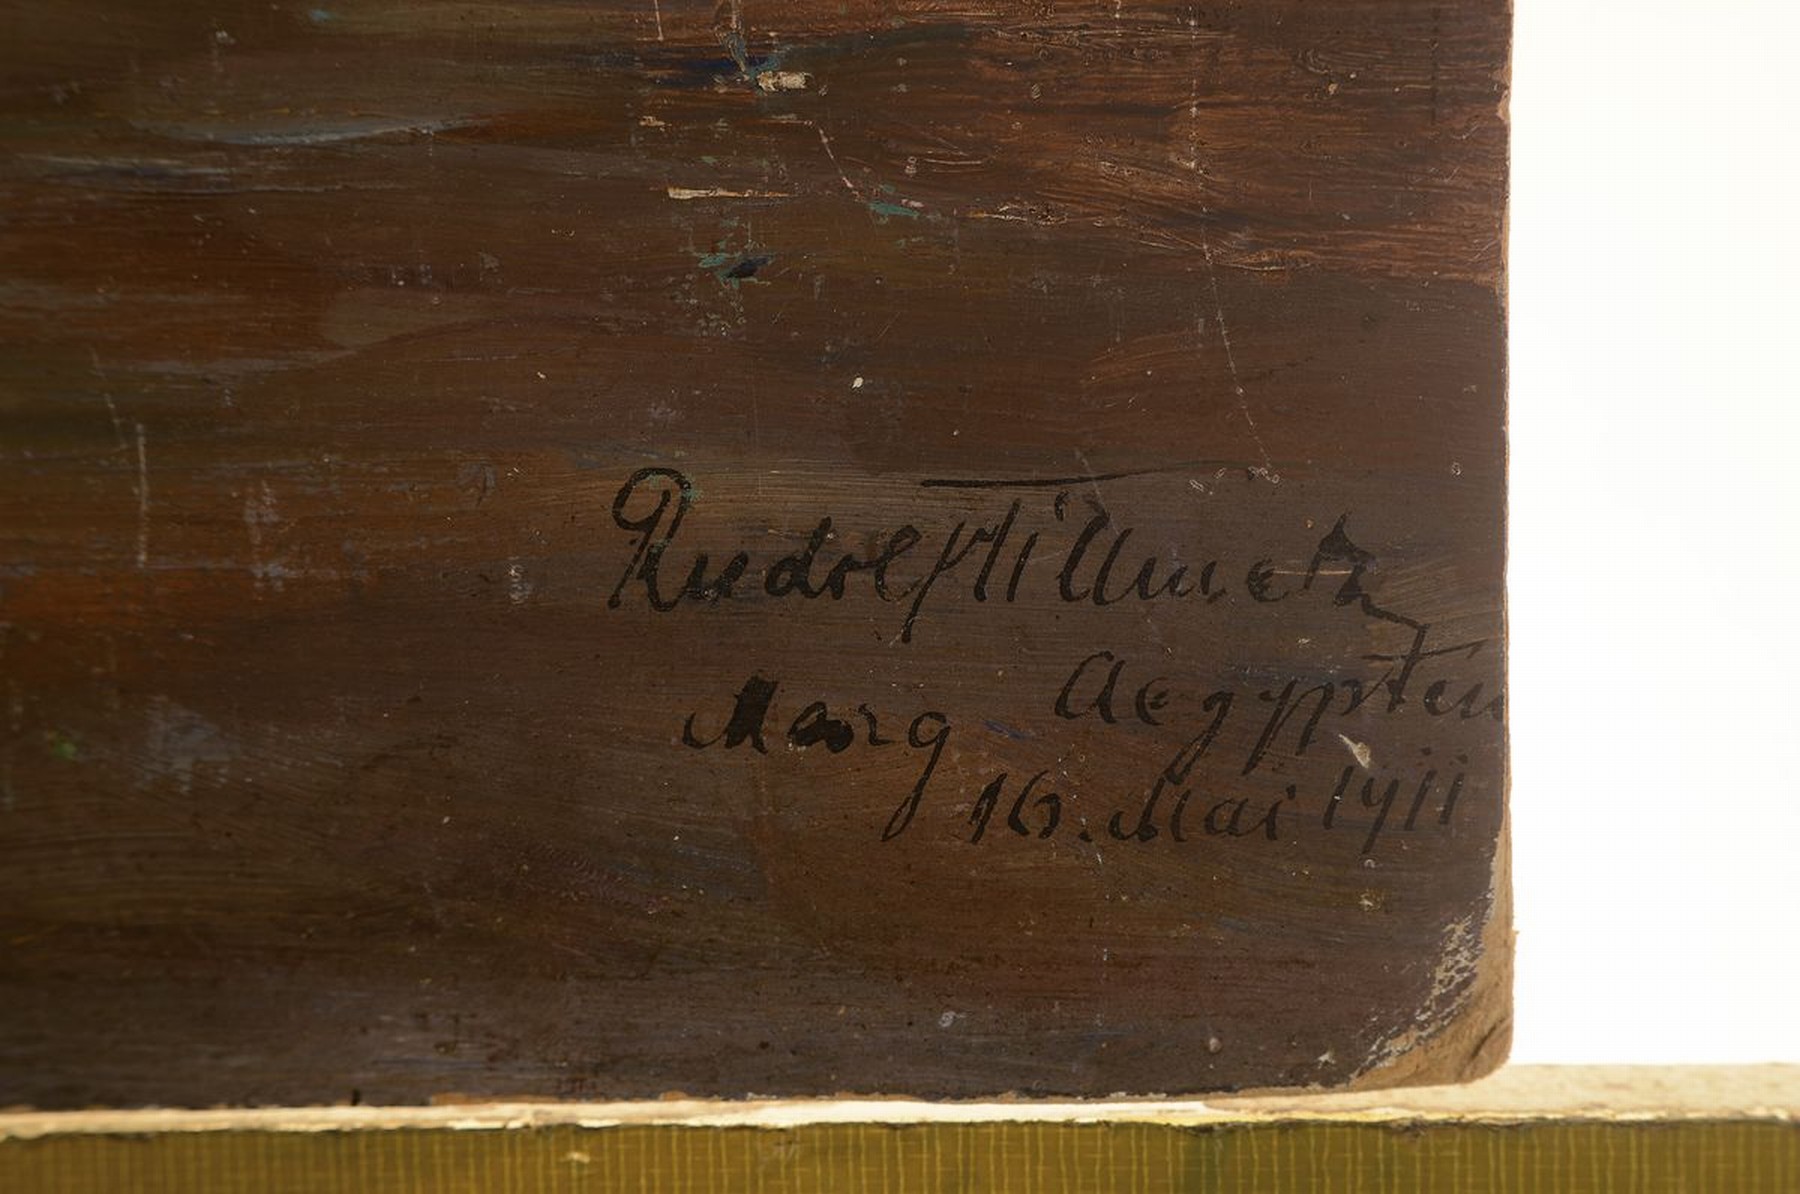 Rudolf Tillmetz
Aegypten
Marg
16. Mai 1911